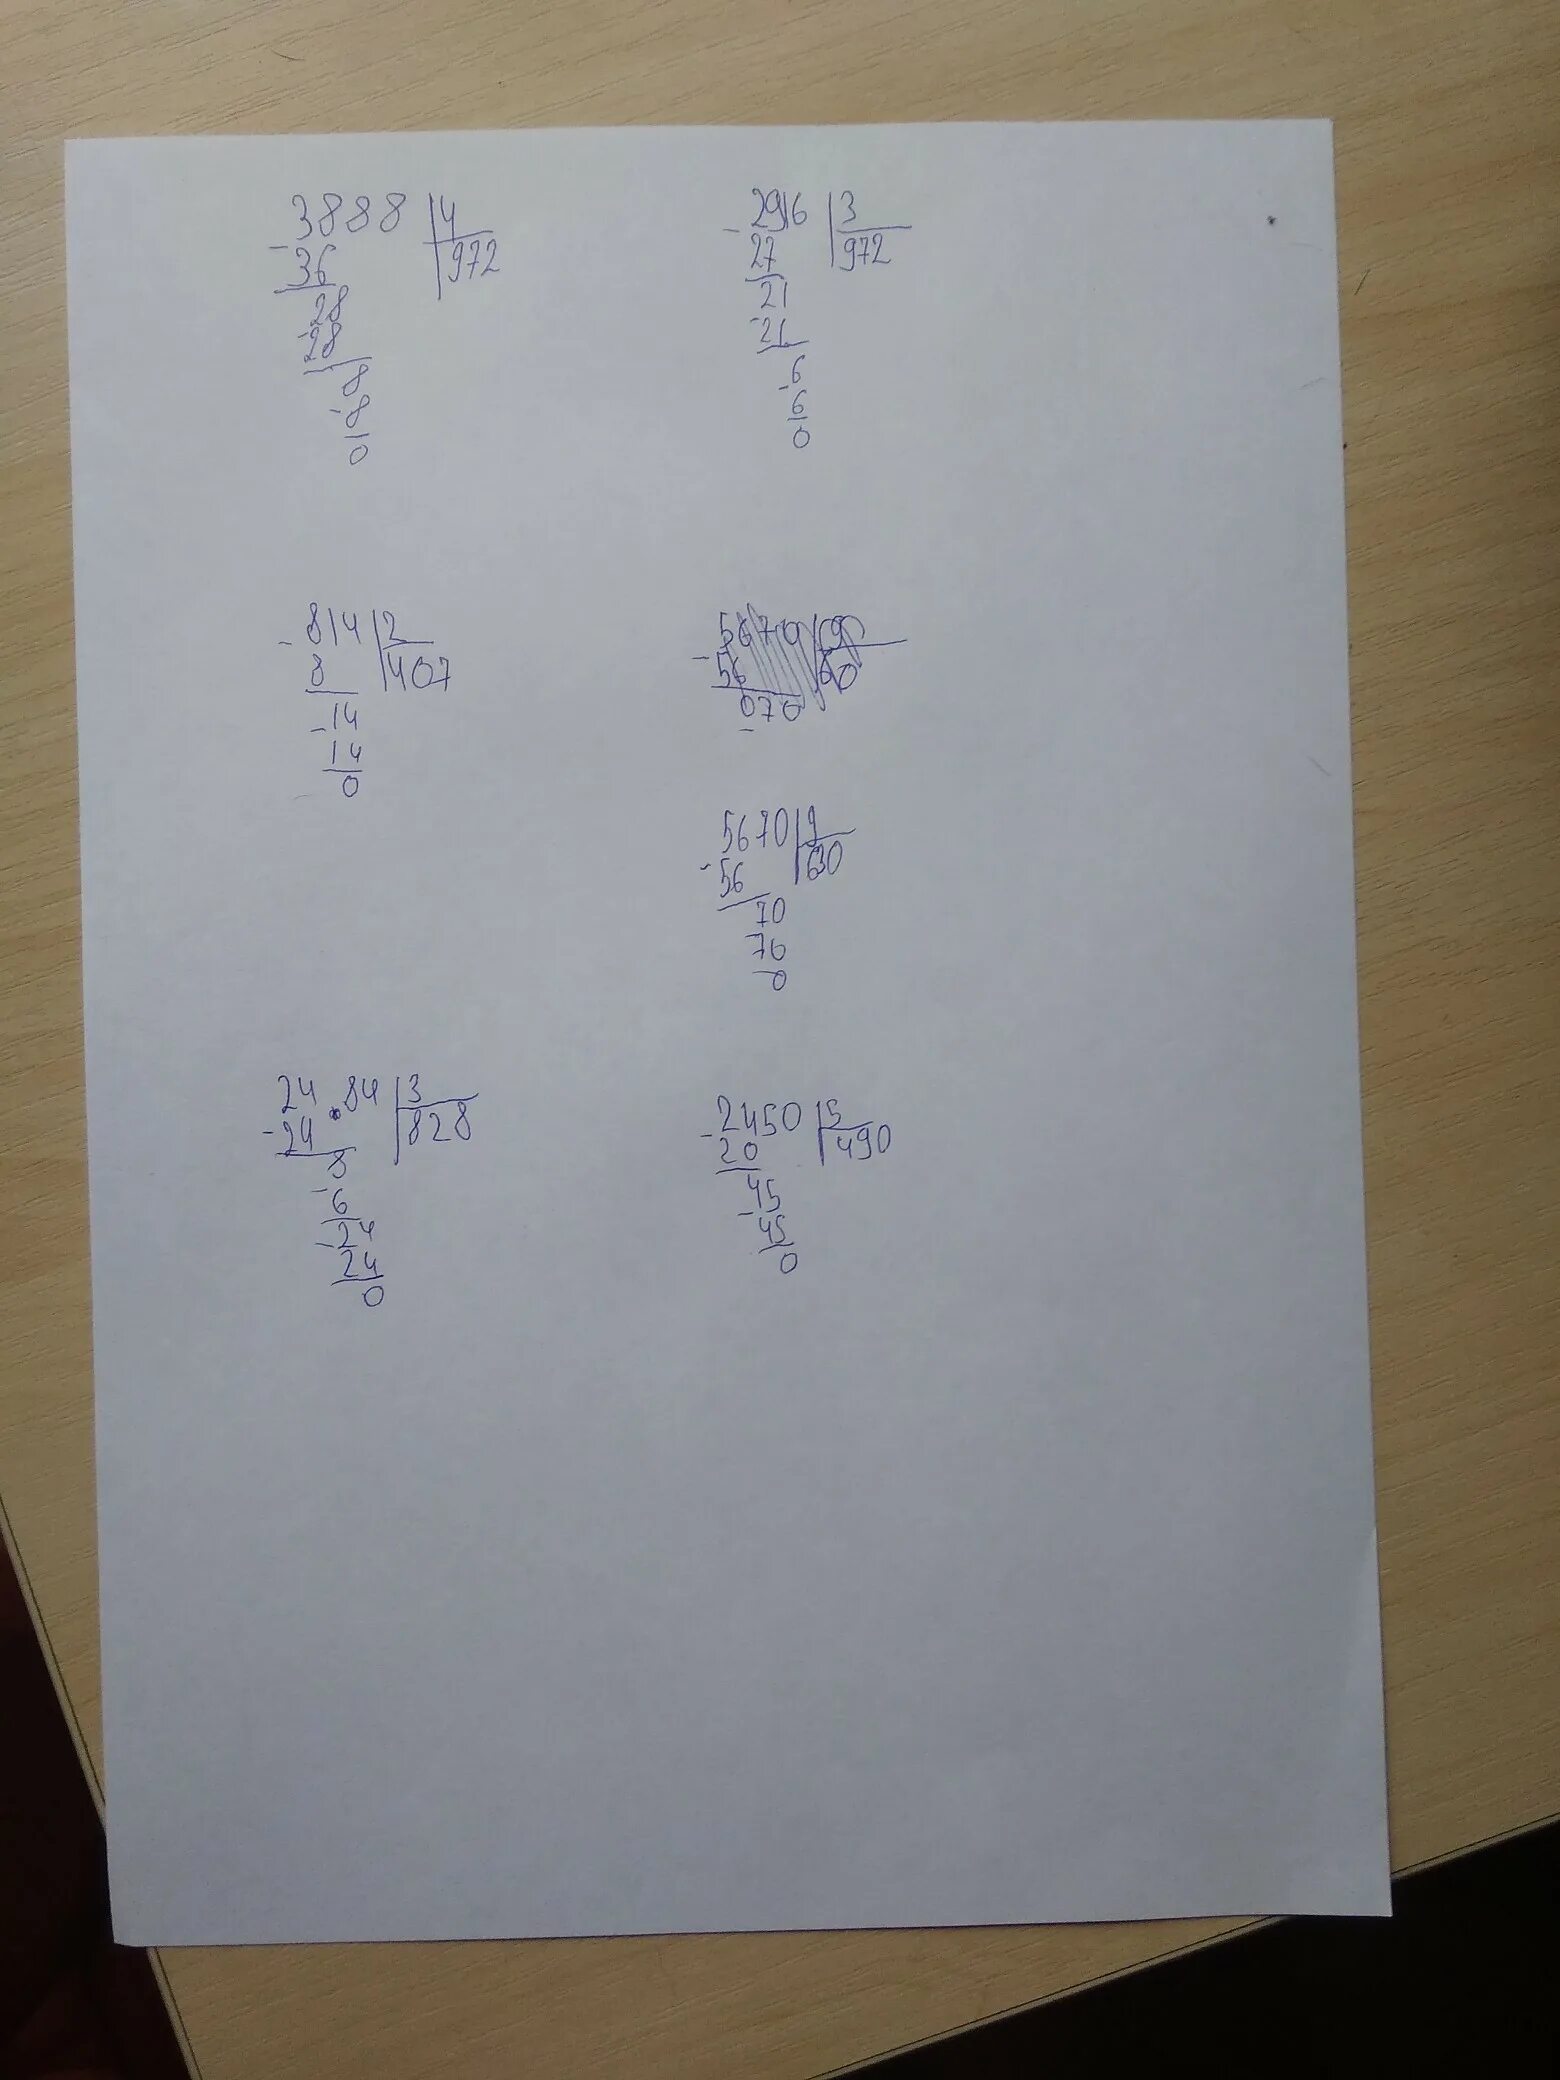 3888 | 4
- 36 | 972
28
- 28
8
- 8
0
2916 | 3
- 27 | 972
21
- 21
6
- 6
0
- 814 | 2
8 | 407
- 14
14
0
- 56
070
-
5670 | 9
- 56 | 630
70
70
0
24 84 | 3
- 24 | 828
8
- 6
- 24
24
0
- 2450 | 5
20 | 490
45
- 45
0